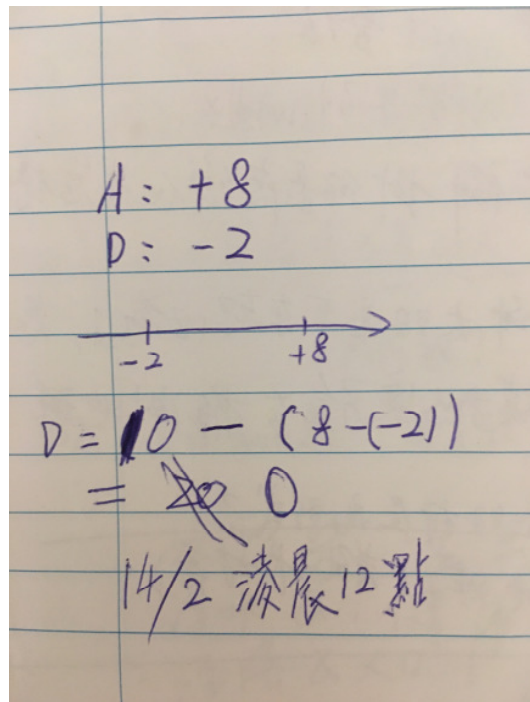 A: +8
D: -2
-2 +8
D = 10 - (8-(-2))
= 0
14/2 凌晨12點